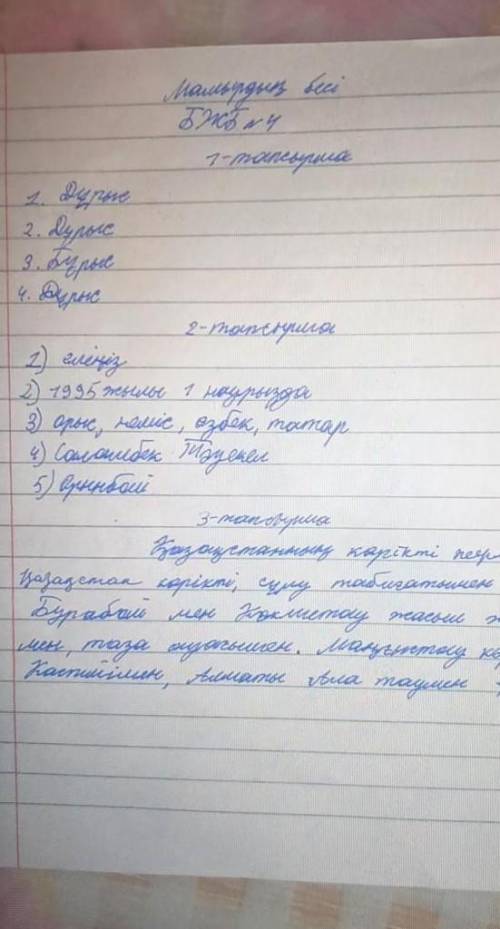 Мамырдың бесі
БЖБ №4
1-тапсырма
1. Дұрыс
2. Дұрыс
3. Бұрыс
4. Дұрыс
2-тапсырма
1) еліңіз
2) 1995 жылы 1 наурызда
3) орыс, неміс, өзбек, татар
4) Саламбек Тәуекел
5) Орынбай
3-тапсырма
Қазақстанның көрікті
Қазақстан көрікті, сұлу табиғатымен
Бурабай мен Көкшетау жасыл
мен, таза ауасымен. Маңғыстау
Каспиймен, Алматы Ала таумен